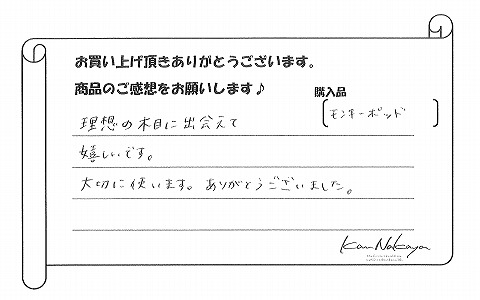 お買い上げ頂きありがとうございます。
商品のご感想をお願いします♪
購入品
[モンキーポッド]
理想の木目に出会えて
嬉しいです。
大切に使います。ありがとうございました。
Kan Nakaya